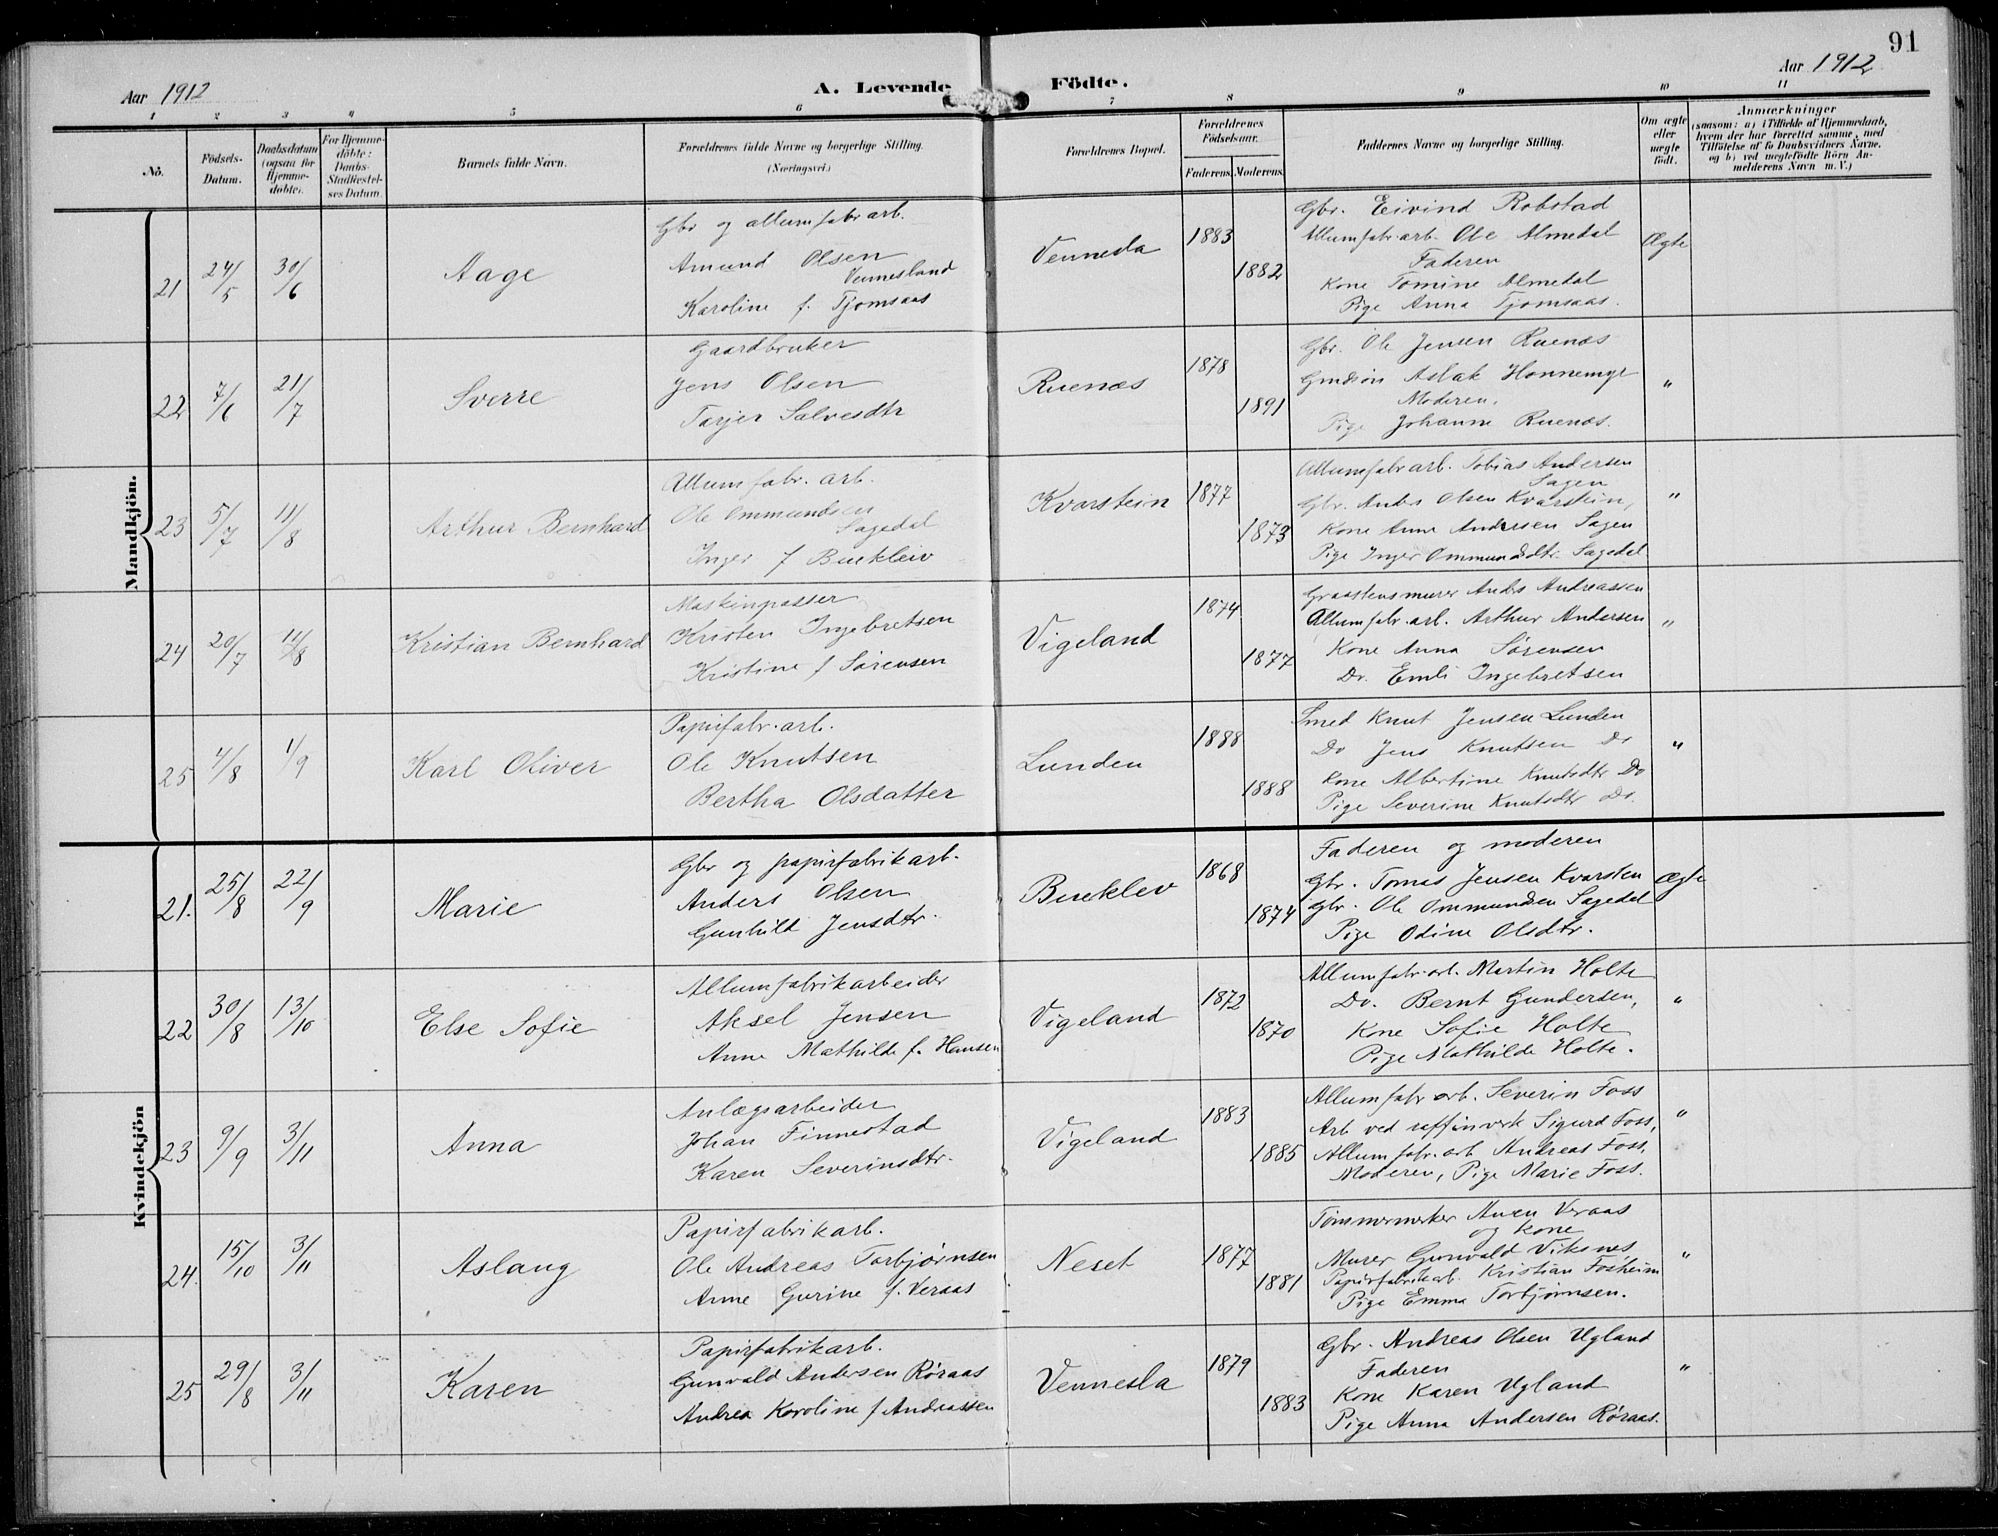 91
Aar 1912
A. Levende Födte.
Aar 1912
1 2 3 4 5 6 7 8 9 10 11
No.
Födsels-Datum.
Daabsdatum (ogsaa for Hjemmedöbte).
For Hjemmedöbte: Daabs Stadfæstelses Datum.
Barnets fulde Navn.
Forældrenes fulde Navne og borgerlige Stilling.
(Næringsvei.)
Forældrenes Bopæl.
Forældrenes Födselsaar.
Faderens. Moderens.
Faddernes Navne og borgerlige Stilling.
Om ægte eller uægte födt.
Anmærkninger
(saasom: a) i Tilfælde af Hjemmedaab,
hvem der har forrettet samme, med
Tilföielse af to Daabsvidners Navne,
og b) ved uægtefödte Börn An-
melderens Navn m. V.)
Mandkjön.
21 24/5 30/6 Aage
Gbr og allumfabr arb.
Amund Olsen
Vennesland
Karoline f. Tjomsaas
Vennesla 1883 1882
Gbr. Eivind Robstad
Allumfabr. arb. Ole Almedal
Faderen
Kone Tomine Almedal
Pige Anna Tjomsaas.
Ægte
22 7/6 21/7 Sverre
Gaardbruker
Jens Olsen
Tarjer Salvesdtr
Ruenæs 1878 1891
Gbr. Ole Jensen Ruenæs
Gmdsøn Aslak Honnemyr
Moderen.
Pige Johanne Ruenæs.
"
23 5/7 11/8 Arthur Bernhard
Allumfabr. arb.
Ole Ommundsen
Sagedal
Inger f Bueklev
Kvarstein 1877 1873
Allumfabr arb. Tobias Andersen
Sagen
Gbr. Anders Olsen Kvarstein,
Kone Anne Andersen Sagen
Pige Inger Ommundsdtr. Sagedal
"
24 20/7 11/8 Kristian Bernhard
Maskinpasser
Kristen Ingebretsen
Kristine f Sørensen
Vigeland 1874 1877
Graastensmurer Anders Andreassen
Allumfabr. arb. Arthur Andersen
Kone Anna Sørensen
Do. Emli Ingebretsen
"
25 4/8 1/9 Karl Oliver
Papirfabr. arb.
Ole Knutsen
Bertha Olsdatter
Lunden 1888 1888
Smed Knut Jensen Lunden
Do Jens Knutsen Do
Kone Albertine Knutsdtr Do
Pige Severine Knutsdtr Do.
"
Kvindekjön
21. 25/8 22/9 Marie
Gbr og papirfabrikarb.
Anders Olsen
Gunhild Jensdtr.
Bueklev 1868 1874
Faderen og moderen
Gbr. Tomas Jensen Kvarsten
Gbr. Ole Ommundsen Sagedal
Pige Odine Olsdtr.
Ægte
22 30/8 13/10 Else Sofie
Allumfabrikarbeider
Aksel Jensen
Anne Mathilde f. Hansen
Vigeland 1872 1870
Allumfabr. arb. Martin Holte
Do. Bernt Gundersen,
Kone Sofie Holte
Pige Mathilde Holte.
"
23 9/9 3/11 Anna
Anlægsarbeider
Johan Finnestad
Karen Severinsdtr.
Vigeland 1883 1885
Allumfabr arb. Severin Foss
Arb ved raffinverk Sigurd Foss,
Allumfabr. arb Andreas Foss,
Moderen, Pige Marie Foss.
"
24. 15/10 3/11 Aslaug
Papirfabrikarb.
Ole Andreas Torbjørnsen
Anne Gurine f. Veraas
Neset 1877 1881
Tømmermerker Auen Veraas
og kone
Murer Gunvald Viksnes
Papirfabrikarb. Kristian Fosheim
Pige Emma Torbjørnsen.
"
25 29/8 3/11 Karen
Papirfabrikarb.
Gunvald Andersen Røraas
Andrea Karoline f Andreassen
Vennesla 1879 1883
Gbr. Andreas Olsen Ugland
Faderen
Kone Karen Ugland
Pige Anna Andersen Røraas.
"